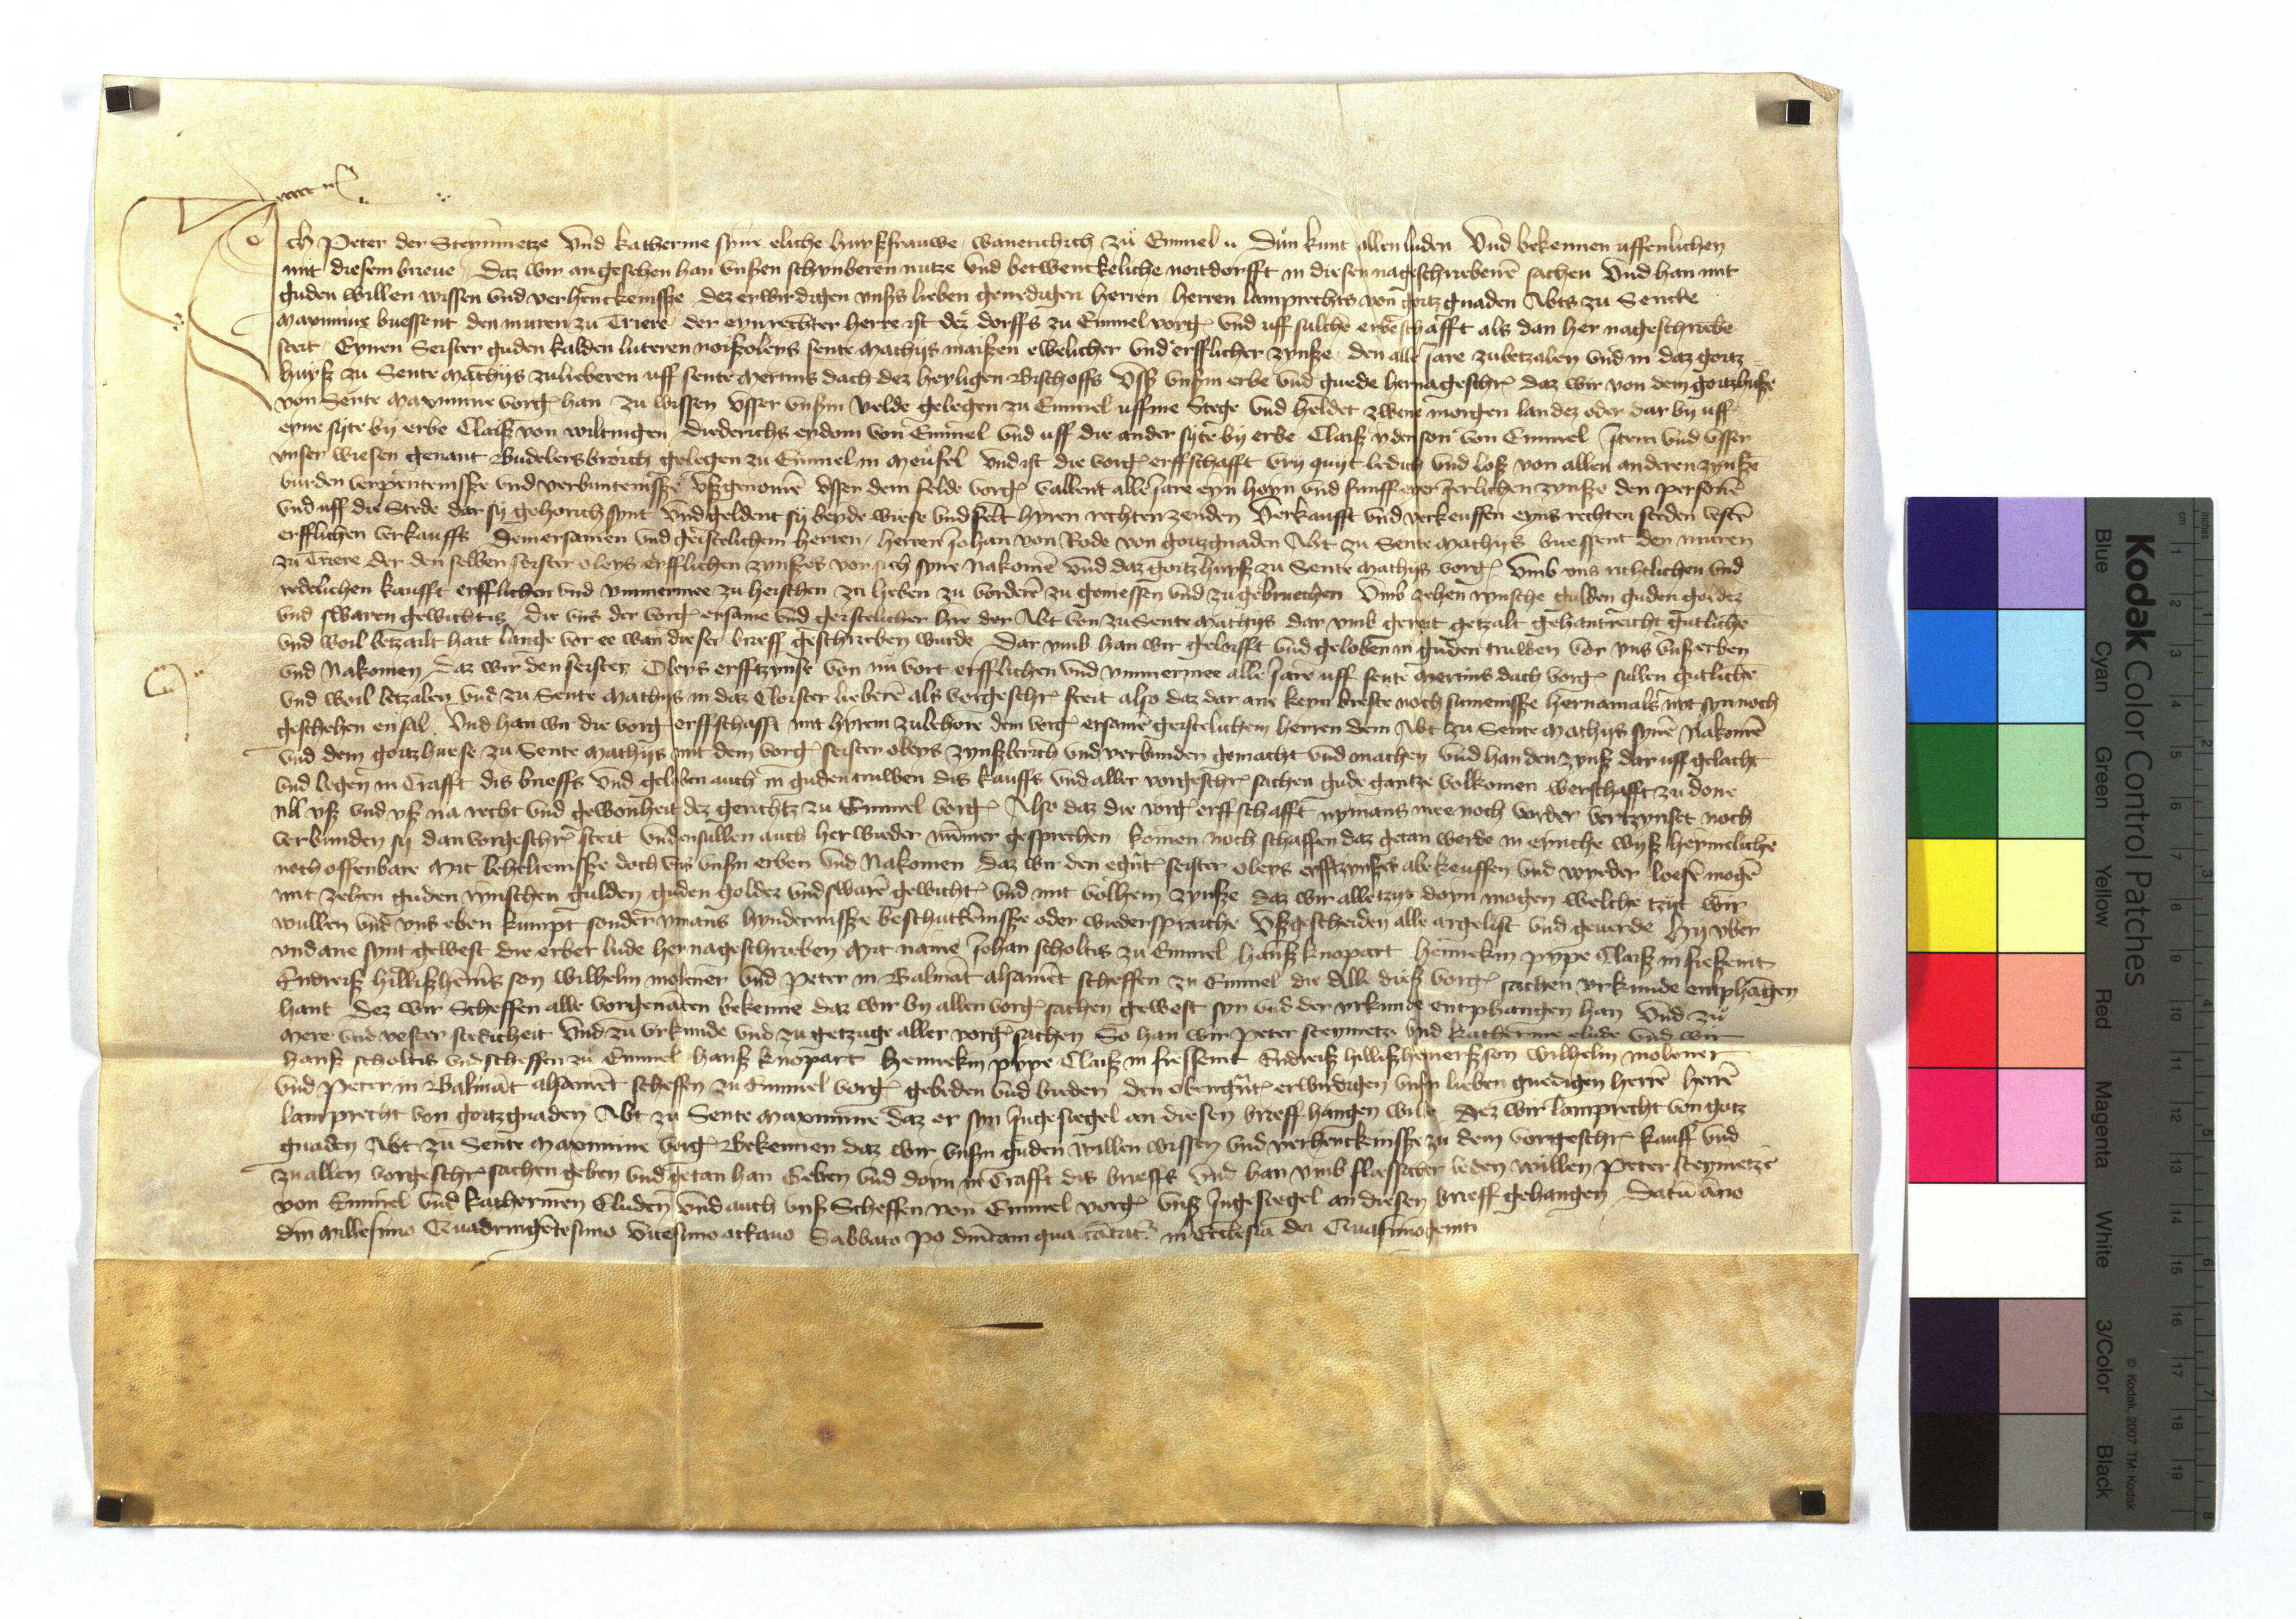 Ich Peter der Steynmetze Vnd katherine syne eliche huysfrauwe wanenthich zu Emmel Dun kunt allen luden Vnd bekennen uffenlichen
mit diesem brieue Daz wir angesehen han vnsen schynberen nutze vnd betwenckeliche nortdorfft in diesen nageschriebenē sachen Vnd han mit
guden willen wissen vnd verhenckenisse dez erwirdigen vnßs lieben genedigen herren herren lamprechts von gotz gnaden Abts zu Sencte
Maximine buessent den muren zu Triere der eyn rechter herre ist dez dorffs zu Emmel vorg vnd uff sulche erbeschafft als dan her nageschriebē
steit Eynen Seister guden kalden luteren noißoleys sente Mathijs maißen ewelicher vnd erfflicher zynße den alle Jare zubetzalen vnd in daz gotz
huyß zu Sente Mathijs zulieberen uff sente Mertins dach dez heyligen Bischoffs Vß vnßm erbe vnd guede hernageschr daz wir von dem gotzhuße
von Sente Maximine vorg han zu wissen Vsser vnßm velde gelegen zu Emmel uffme Stege vnd heldet zwene morgen landez oder dar by uff
eyne syte by erbe Claiß von wiltingen Diederichs eydom von Emmel vnd uff die ander syte by erbe Claiß son von Emmel Jtem vnd vsser
vnser wiesen genant Budelersbroich gelegen zu Emmel in Meußel vnd ist die vorg erffschafft vry quyt ledich vnd loß von allen anderen zynße
burden verpentenisse vnd verbuntenisse vßgenomē vsser dem felde vorg vallent alle Jare eyn hoyn vnd funff eyer Jerlichen zynße den personē
vnd uff die Stede dar sy gehorich synt vnd geldent sy beyde wiese vnd felt hyren rechten zenden Verkaufft vnd verkeuffen eyns rechten steden vestē
erfflichen verkauffs Dem ersamen vnd geistelichem herren herren Johan von Rode von gotz gnaden Abt zu Sente Mathijs buessent den muren
zu Triere der den selben seister oleys erfflichen zynßes vor sich syne Nakomē vnd daz gotz huyß zu Sente Mathijs vorg vmb vns richtlichen vnd
redelichen kaufft erfflichen vnd vmmermee zu heischen zu heben zu vorderē zu geniessen vnd zu gebruechen vmb zehen rynsche gulden guden goldez
vnd swaren gewichtis die vns der vorg ersame vnd geistelicher her der Abt von zu Sente Mathijs dar vmb gereit getzalt gehantreicht gutliche
vnd woil betzailt hait lange vor ee wan dieser brieff geschrieben wurde Dar vmb han wir geloifft vnd geloben in guden truwen vor vns vnß erben
vnd Nakomen daz wir den seister Oleys erfftzynße von nu vort erfflichen vnd vmmermee alle Jare uff sente Mertins dach vorg sullen gutliche
vnd woil betzalen vnd zu Sente Mathijs in daz Cloister lieberē als vorgeschr steit also daz dar ane keyn breste noch sumenisse hernamals nyt syn noch
geschehen en sal Vnd han wir die vorg erffschafft mit hyrem zubehore dem vorg ersamē geistelichem herren dem Abt zu Sente Mathijs synē Nakomē
vnd dem gotzhuese zu Sente Mathijs mit dem vorg seister oleys zynßberich vnd verbunden gemacht vnd machen vnd han den zynß dar uff gelacht
vnd legen in Crafft dis brieffs vnd geloben auch in guden truwen dis kauffs vnd aller vorgeschr sachen gude gantze volkomen werschafft zu done
vß vnd vß na recht vnd gewonheit dez gerichtz zu Emmel vorg Also daz die vorg erffschafft nymans mee noch vorder vertzynset noch
verbunden sy dan vorgeschr steit vnd ensullen auch her wieder nummer gesprechen komen noch schaffen daz getan werde in eyniche wyß heymeliche
noch offenbare Mit beheltenisse doch vns vnßm erben vnd Nakomen daz wir den egut seister oleys erfftzynses abekeuffen vnd wyeder loesē mogē
mit zehen guden rynschen gulden guden goldez vnd swarē gewicht vnd mit vollem zynße daz wir alletzyt doyn mogen welche tzyt wir
wullen vnd vns eben kumpt sonder ymans hyndernisse beschutenisse oder wiedersprache Vßgescheiden alle argelist vnd geuerde Hy vber
vnd ane synt gewest die erber lude hernageschrieben Mit name Johan scholtis zu Emmel hanß knopart hennekin pype Claiß in
Endreiß hillißhenns son wilhelm molener vnd Peter in Balmāt alsamēt scheffen zu Emmel die alle dieß vorg sachen vrkunde entphāgen
hant Dez wir Scheffen alle vorgenāten bekenne daz wir by allen vorg sachen gewest syn vnd der vrkunde entphangen han Vnd zu
Mere vnd vester stedicheit vnd zu vrkunde vnd zu getzuge aller vorg sachen So han wir Peter steymetze vnd katherine elude vnd wir
hanß scholtis vnd scheffen zu Emmel hanß knopart hennekin pype Claiß in Endreiß hillißhennerß son wilhelm molener
vnd Peter in Balmāt alsamēt scheffen zu Emmel vorg gebeden vnd bieden den obengut erwirdigen vnßn lieben gnedigen herrē herrē
lamprecht von gotz gnaden Abt zu Sente Maximine daz er syn Ingesiegel an diesen brieff hangen wille Dez wir lamprecht von gotz
gnaden Abt zu Sente Maximine vorg Bekennen daz wir vnßm guden willen wissen vnd verhenckenisse zu dem vorgeschr kauff vnd
zu allen vorgeschr sachen geben vnd getan han Geben vnd doyn in Crafft dis brieffs vnd han vmb flessicher beden willen Peter steymetze
von Emmel vnd katherinen Eluden vnd auch vnß Scheffen von Emmel vorg vnß Ingesiegel an diesen brieff gehangen Datū āno
dm Millesimo Quadringētesimo vicesimo octauo Sabbato po dmīcam qua cātat in Ecclesia dei Quasimogeniti
Kodak Color Control Patches
Blue Cyan Green Yellow Red Magenta White 3/Color Black
© Kodak, 2007 TM: Kodak
inches 1 2 3 4 5 6 7 8
cm 1 2 3 4 5 6 7 8 9 10 11 12 13 14 15 16 17 18 19